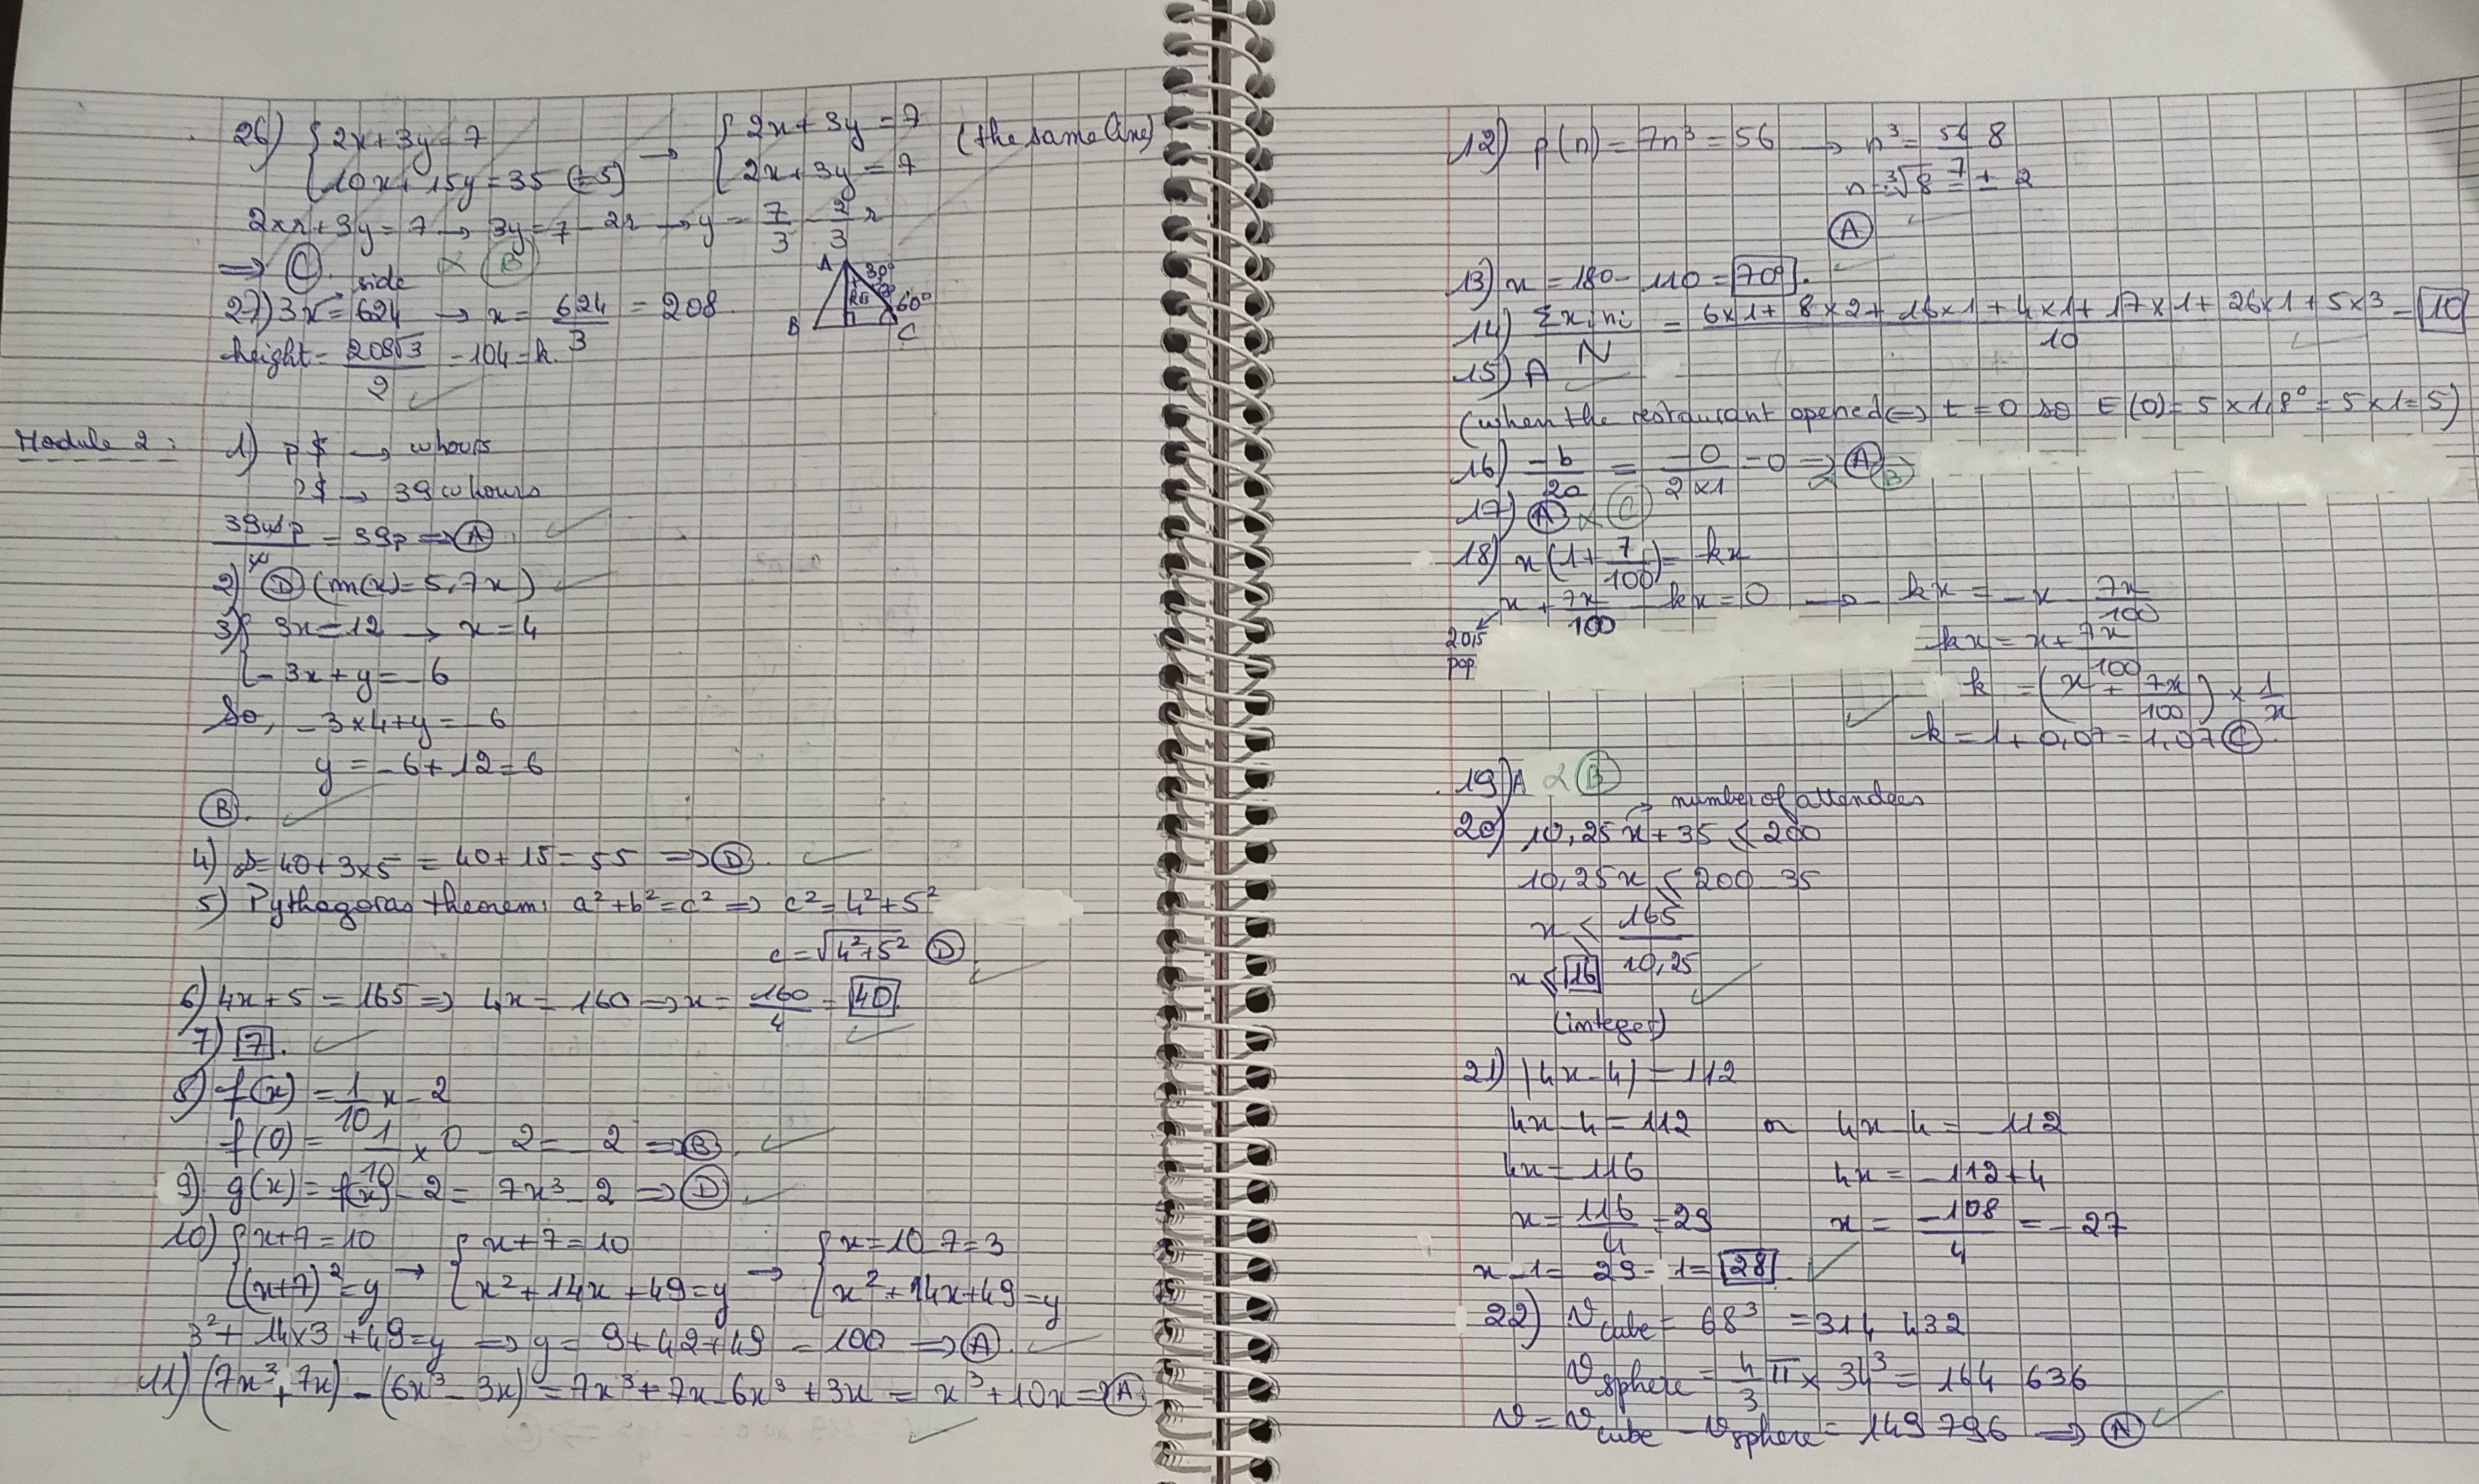 26) { 2x + 3y = 7
{ 10x + 15y = 35 (÷5) → { 2x + 3y = 7
{ 2x + 3y = 7 (the same line)
2xx + 3y = 7 → 3y = 7 - 2x → y = 7/3 - 2/3 x
⇒ C. α B
side
27) 3x = 624 → x = 624/3 = 208
height = 208√3/2 = 104 = k.
A 30° 60° B C
Module 2 :
1) p$ → w hours
?$ → 39w hours
39wp/w = 39p ⇒ A
2) D (m(x) = 5,7x)
3) { 3x = 12 → x = 4
{ - 3x + y = - 6
So, - 3×4 + y = - 6
y = - 6 + 12 = 6
B.
4) s = 40 + 3×5 = 40 + 15 = 55 ⇒ D.
5) Pythagoras theorem: a² + b² = c² ⇒ c² = 4² + 5²
c = √4² + 5² D
6) 4x + 5 = 165 ⇒ 4x = 160 ⇒ x = 160/4 = 40
7) 7.
8) f(x) = 1/10 x - 2
f(0) = 1/10 × 0 - 2 = - 2 ⇒ B
9) g(x) = f(x) - 2 = 7x³ - 2 ⇒ D
10) { x + 7 = 10
{ (x + 7)² = y → { x + 7 = 10
{ x² + 14x + 49 = y → { x = 10 - 7 = 3
{ x² + 14x + 49 = y
3² + 14×3 + 49 = y ⇒ y = 9 + 42 + 49 = 100 ⇒ A.
11) (7x³ + 7x) - (6x³ - 3x) = 7x³ + 7x - 6x³ + 3x = x³ + 10x ⇒ A
12) p(n) = 7n³ = 56 → n³ = 56/7 8
n = ³√8 = ± 2
A
13) x = 180 - 110 = 70°.
14) Σxini/N = 6×1 + 8×2 + 16×1 + 4×1 + 17×1 + 26×1 + 5×3/10 = 10
15) A
(when the restaurant opened ⇔ t = 0 so E(0) = 5 × 1,8⁰ = 5 × 1 = 5)
16) -b/2a = -0/2×1 = 0 ⇒ A α B
17) A α C
18) x(1 + 7/100) = kx
x + 7x/100 - kx = 0 → - kx = - x - 7x/100
2015 pop
kx = x + 7x/100
k = (x + 7x/100) × 1/x
k = 1 + 0,07 = 1,07 C.
19) A α B
number of attendees
20) 10,25x + 35 ≤ 200
10,25x ≤ 200 - 35
x ≤ 165/10,25
x ≤ 16
(integer)
21) |4x - 4| = 112
4x - 4 = 112 or 4x - 4 = - 112
4x = 116 4x = - 112 + 4
x = 116/4 = 29 x = -108/4 = - 27
x - 1 = 29 - 1 = 28.
22) V cube = 68³ = 314 432
V sphere = 4/3 π × 34³ = 164 636
V = V cube - V sphere = 149 796 ⇒ A